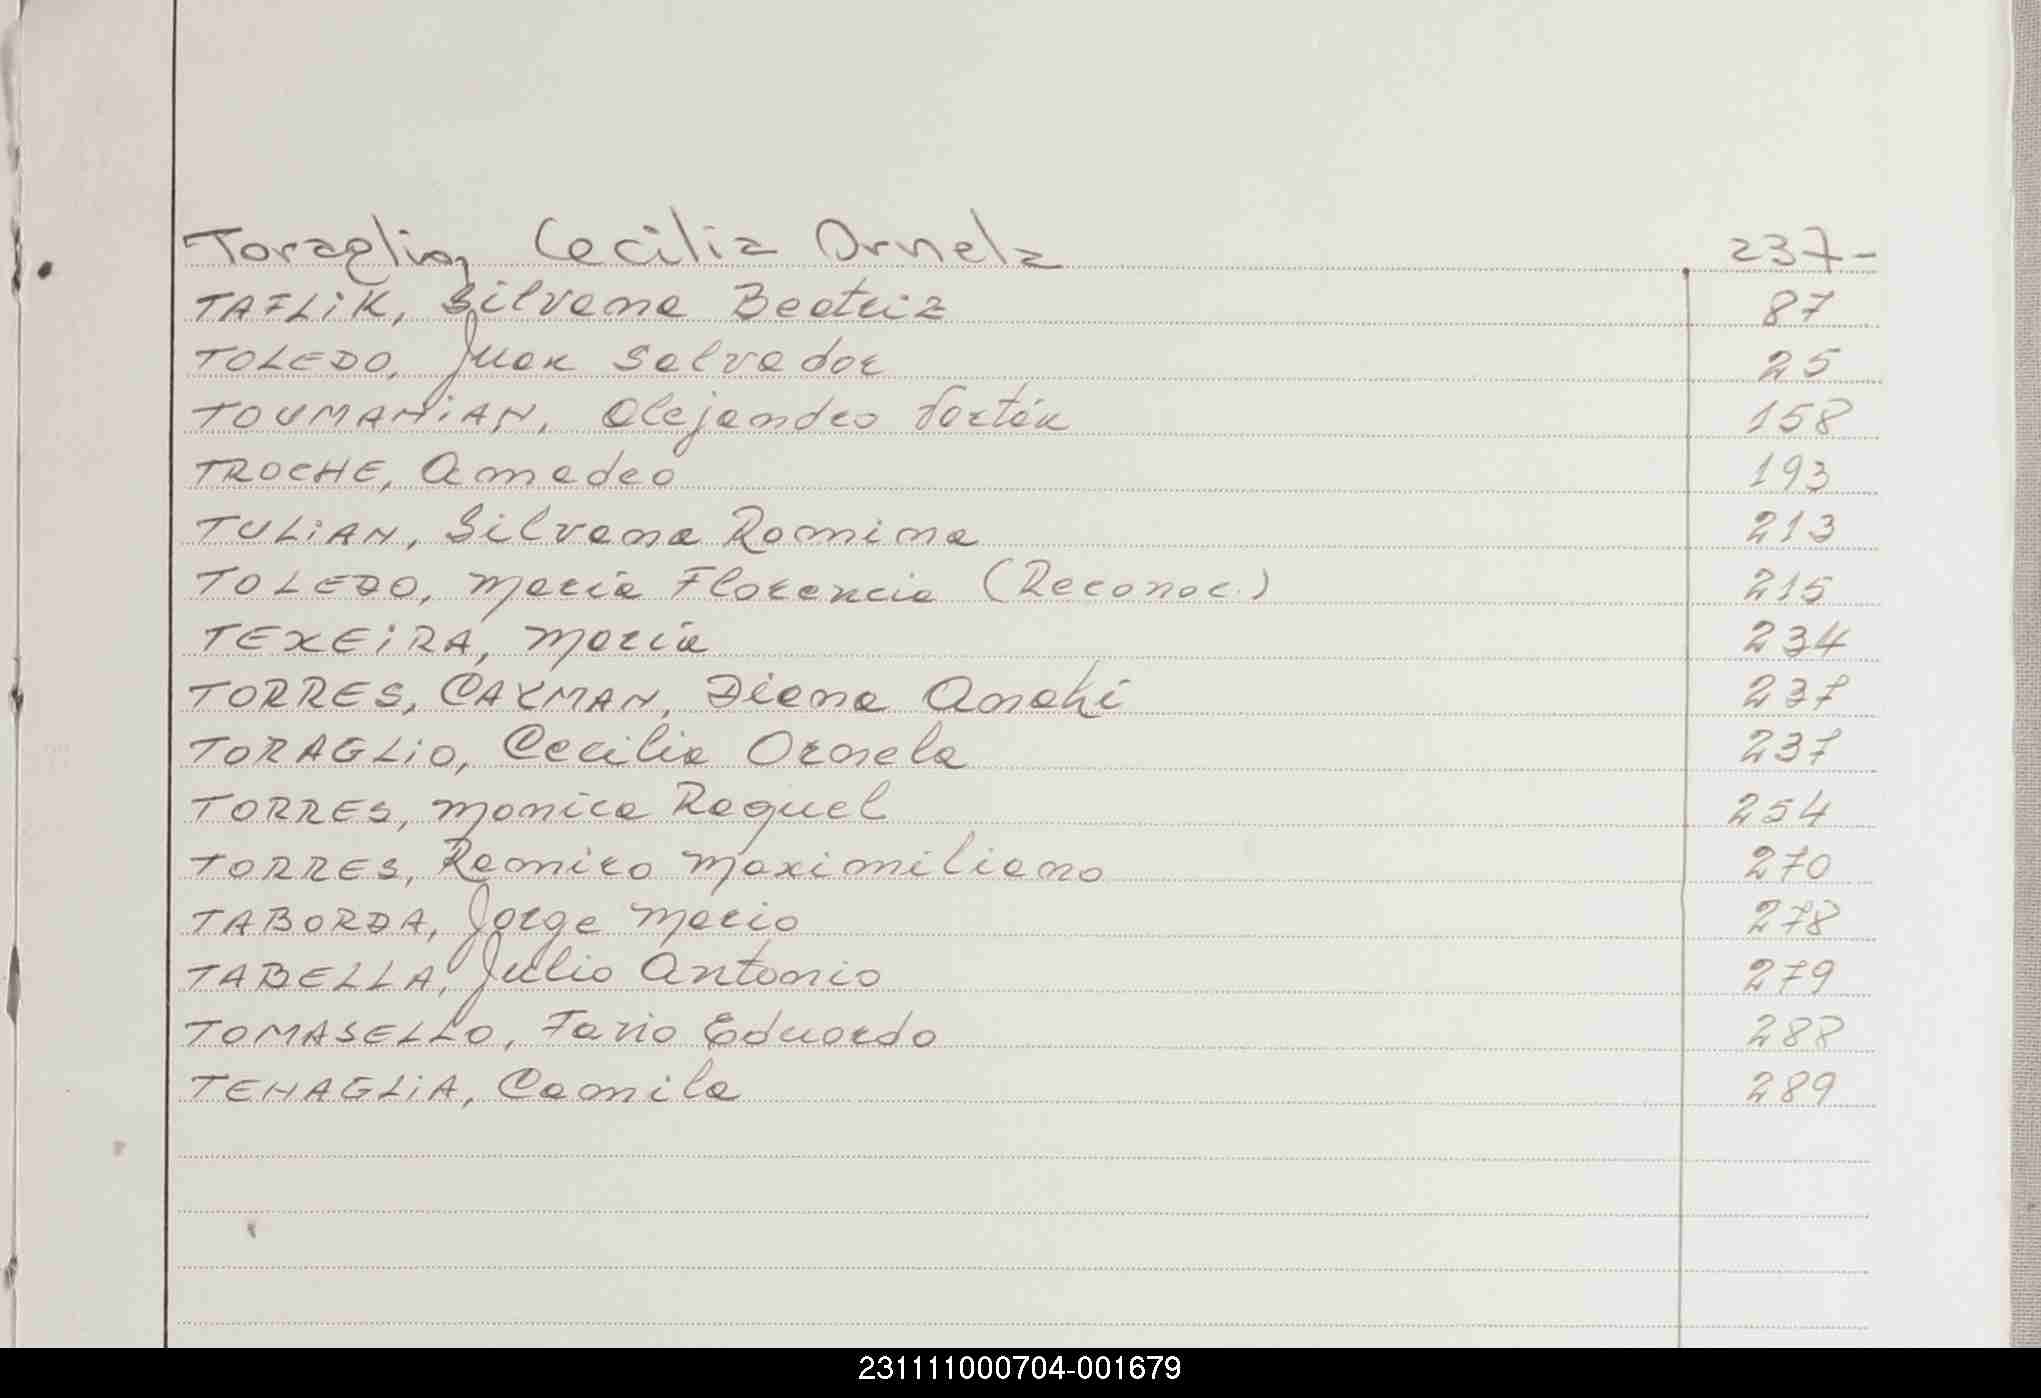 Toraglio, Cecilia Ornela 237-
TAFLiK, Silvana Beatriz 87
TOLEDO, Juan Salvador 25
TOUMANiAN, Alejandro 158
TROCHE, Amadeo 193
TULiAN, Silvana Romina 213
TOLEDO, María Florencia (Reconoc.) 215
TEXEiRA, María 234
TORRES, CAYMAN, Diana Anahi 237
TORAGLiO, Cecilia Ornela 237
TORRES, Monica Raquel 254
TORRES, Ramiro Maximiliano 270
TABORDA, Jorge Mario 278
TABELLA, Julio Antonio 279
TOMASELLO, Eduardo 288
TENAGLiA, Camila 289
231111000704-001679